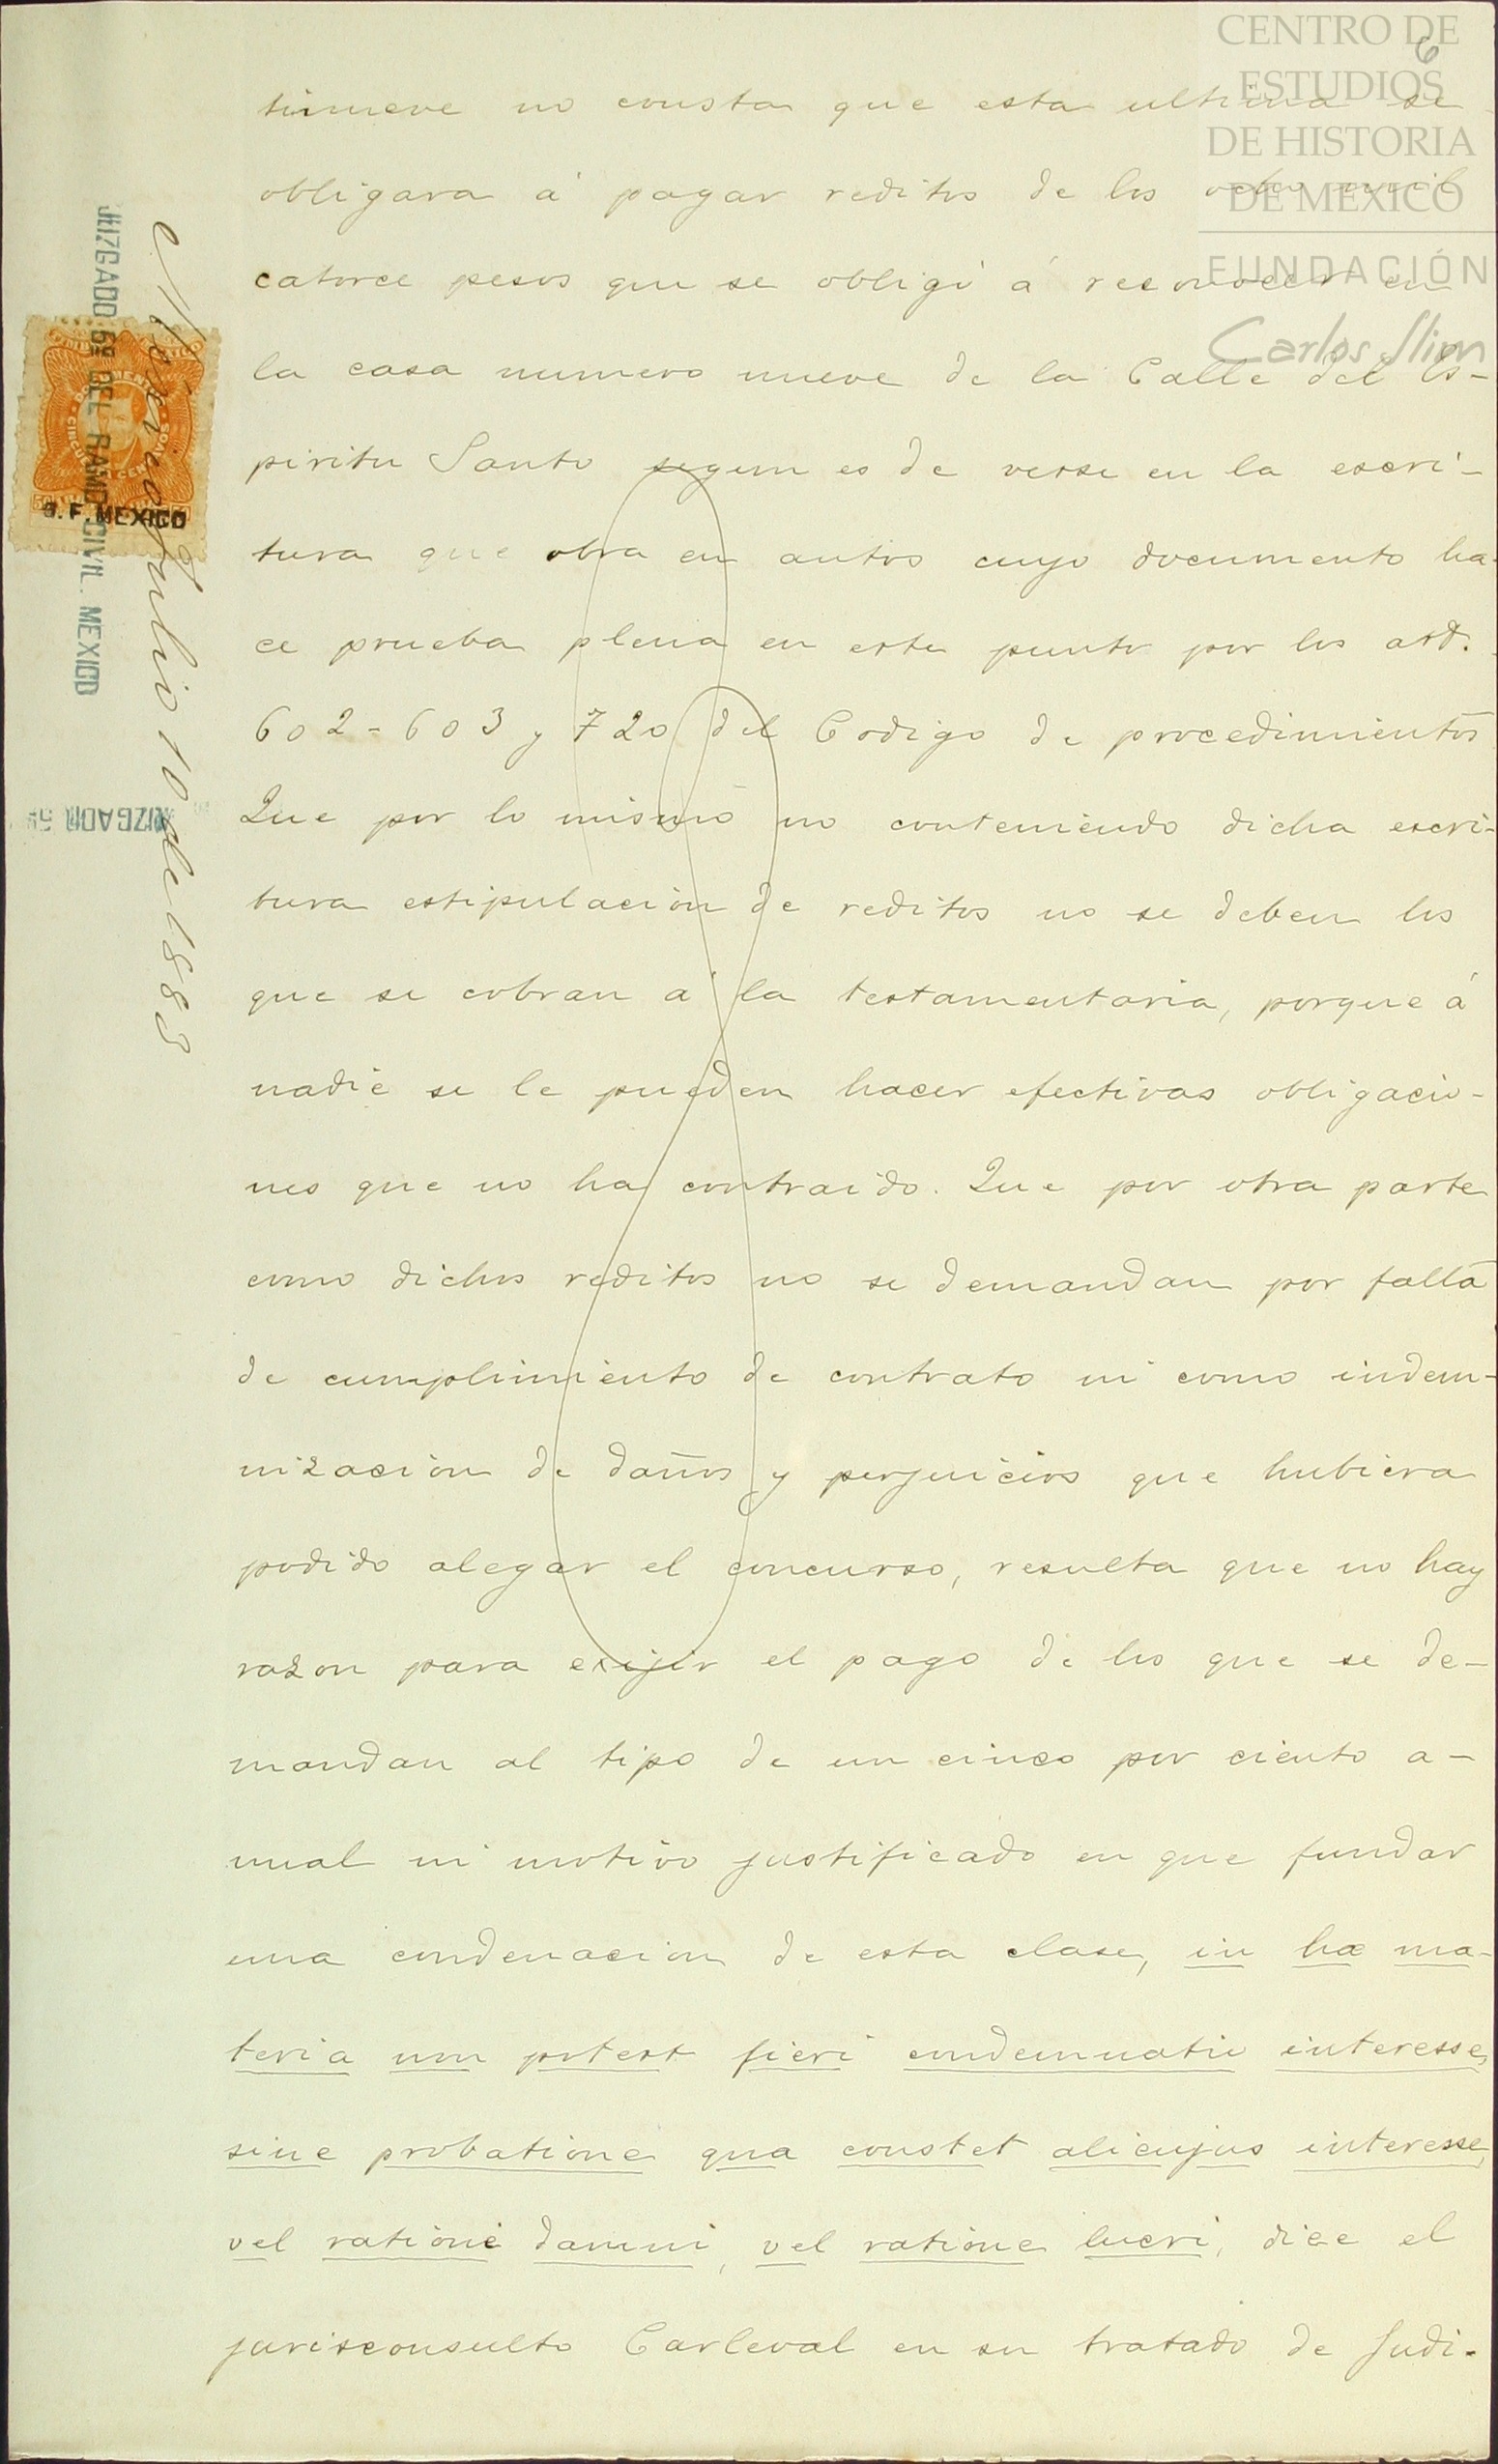 CENTRO DE
ESTUDIOS
DE HISTORIA
DE MEXICO
FUNDACIÓN
Carlos Slim
6
tinueve no consta que esta ultima se
obligara á pagar reditos de los ocho mil
catorce pesos que se obligó á reconocer en
la casa numero nueve de la Calle del Es-
piritu Santo segun es de verse en la escri-
tura que obra en autos cuyo documento ha-
ce prueba plena en este punto por los art.
602-603 y 720 del Codigo de procedimientos
Que por lo mismo no conteniendo dicha escri-
tura estipulacion de reditos no se deben los
que se cobran á la testamentaria, porque á
nadie se le pueden hacer efectivas obligacio-
nes que no ha contraido. Que por otra parte
como dichos reditos no se demandan por falta
de cumplimiento de contrato ni como indem-
nizacion de daños y perjuicios que hubiera
podido alegar el concurso, resulta que no hay
razon para exijir el pago de los que se de-
mandan al tipo de un cinco por ciento a-
nual ni motivo justificado en que fundar
una condenacion de esta clase, in hæ ma-
teria non potest fieri condemnatio interesse,
sine probatione qua constet alicujus interesse,
vel ratione damni, vel ratione lucri, dice el
jurisconsulto Carleval en su tratado de Judi-
JUZGADO 5º DEL RAMO CIVIL. MEXICO
D. F. MEXICO
CINCUENTA CENTAVOS
JUZGADO 5º
Mexico Julio 10 de 1883